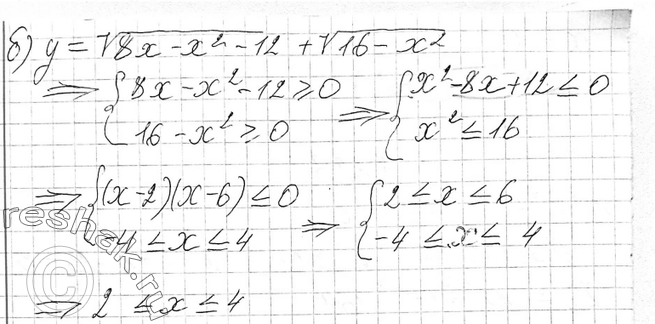 б) y = √(8x - x² - 12) + √(16 - x²)
⇒ { 8x - x² - 12 ≥ 0 ⇒ { x² - 8x + 12 ≤ 0
16 - x² ≥ 0 x² ≤ 16
⇒ { (x - 2)(x - 6) ≤ 0 ⇒ { 2 ≤ x ≤ 6
-4 ≤ x ≤ 4 -4 ≤ x ≤ 4
⇒ 2 ≤ x ≤ 4
reshak.ru
©